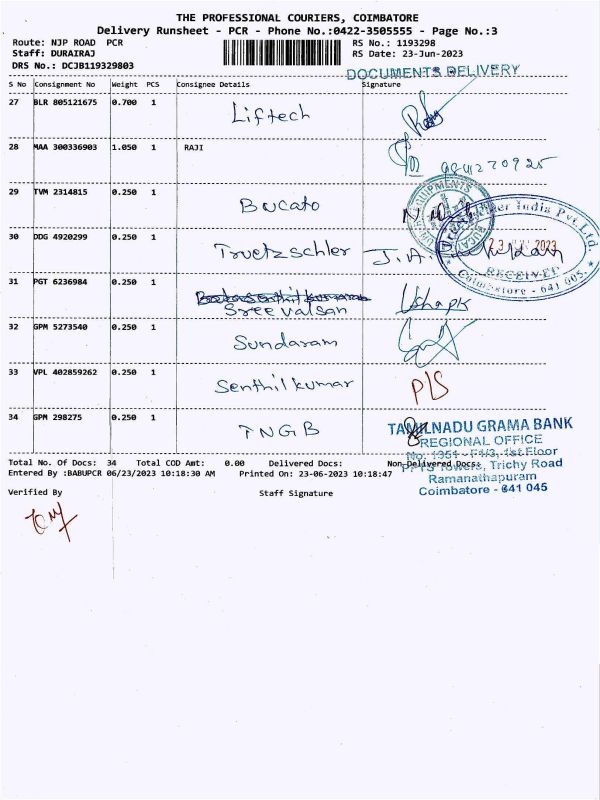 THE PROFESSIONAL COURIERS, COIMBATORE
Delivery Runsheet - PCR - Phone No.:0422-3505555 - Page No.:3
Route: NJP ROAD PCR RS No.: 1193298
Staff: DURAIRAJ RS Date: 23-Jun-2023
DRS No.: DCJB119329803
DOCUMENTS DELIVERY
S No Consignment No Weight PCS Consignee Details Signature
27 BLR 805121675 0.700 1 Liftech
28 MAA 300336903 1.050 1 RAJI
9841270925
29 TVM 2314815 0.250 1 Bucato
30 DDG 4920299 0.250 1 Truetzschler J.A.
23 2023
RECEIVED
Coimbatore - 641 005.
31 PGT 6236984 0.250 1 Sreevalsan Ushapk
32 GPM 5273540 0.250 1 Sundaram
33 VPL 402859262 0.250 1 Senthil kumar PLS
34 GPM 298275 0.250 1 TNGB
TAMILNADU GRAMA BANK
REGIONAL OFFICE
No. 1351 - F1/3, 1st Floor
Towers, Trichy Road
Ramanathapuram
Coimbatore - 641 045
Total No. Of Docs: 34 Total COD Amt: 0.00 Delivered Docs: Non-Delivered Docs:
Entered By :BABUPCR 06/23/2023 10:18:30 AM Printed On: 23-06-2023 10:18:47
Verified By Staff Signature